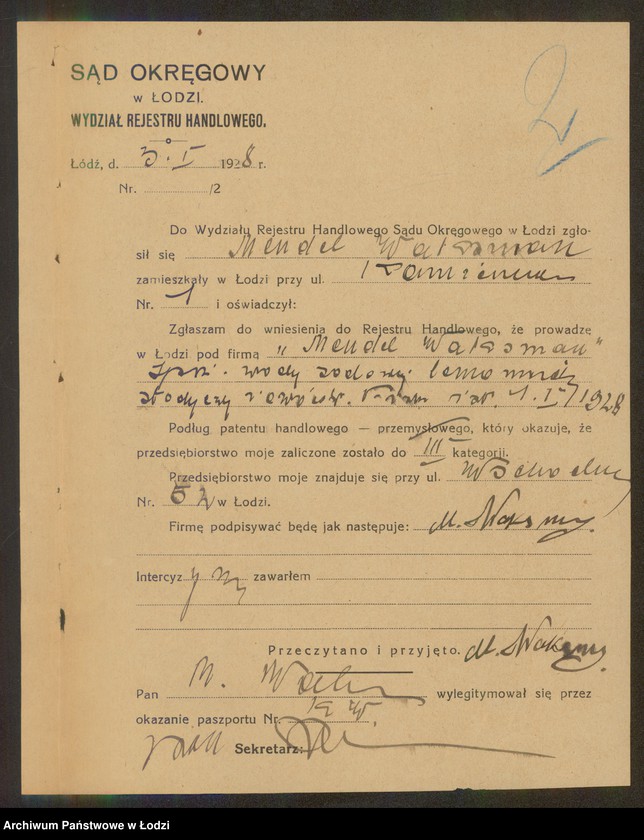 2
SĄD OKRĘGOWY
w ŁODZI.
WYDZIAŁ REJESTRU HANDLOWEGO.
Łódź, d. 3. I 1928 r.
Nr. /2
Do Wydziału Rejestru Handlowego Sądu Okręgowego w Łodzi zgło-
sił się Mendel Waksman
zamieszkały w Łodzi przy ul. Kamienna
Nr. 1 i oświadczył:
Zgłaszam do wniesienia do Rejestru Handlowego, że prowadzę
w Łodzi pod firmą „Mendel Waksman"
wody sodowej
słodyczy i owoców. 1. I 1928
Podług patentu handlowego — przemysłowego, który okazuje, że
przedsiębiorstwo moje zaliczone zostało do III kategorji.
Przedsiębiorstwo moje znajduje się przy ul. Wschodniej
Nr. 52 w Łodzi.
Firmę podpisywać będę jak następuje: M. Waksman
Intercyzy nie zawarłem
Przeczytano i przyjęto. M. Waksman
Pan M. wylegitymował się przez
okazanie paszportu Nr.
Sekretarz:
Archiwum Państwowe w Łodzi